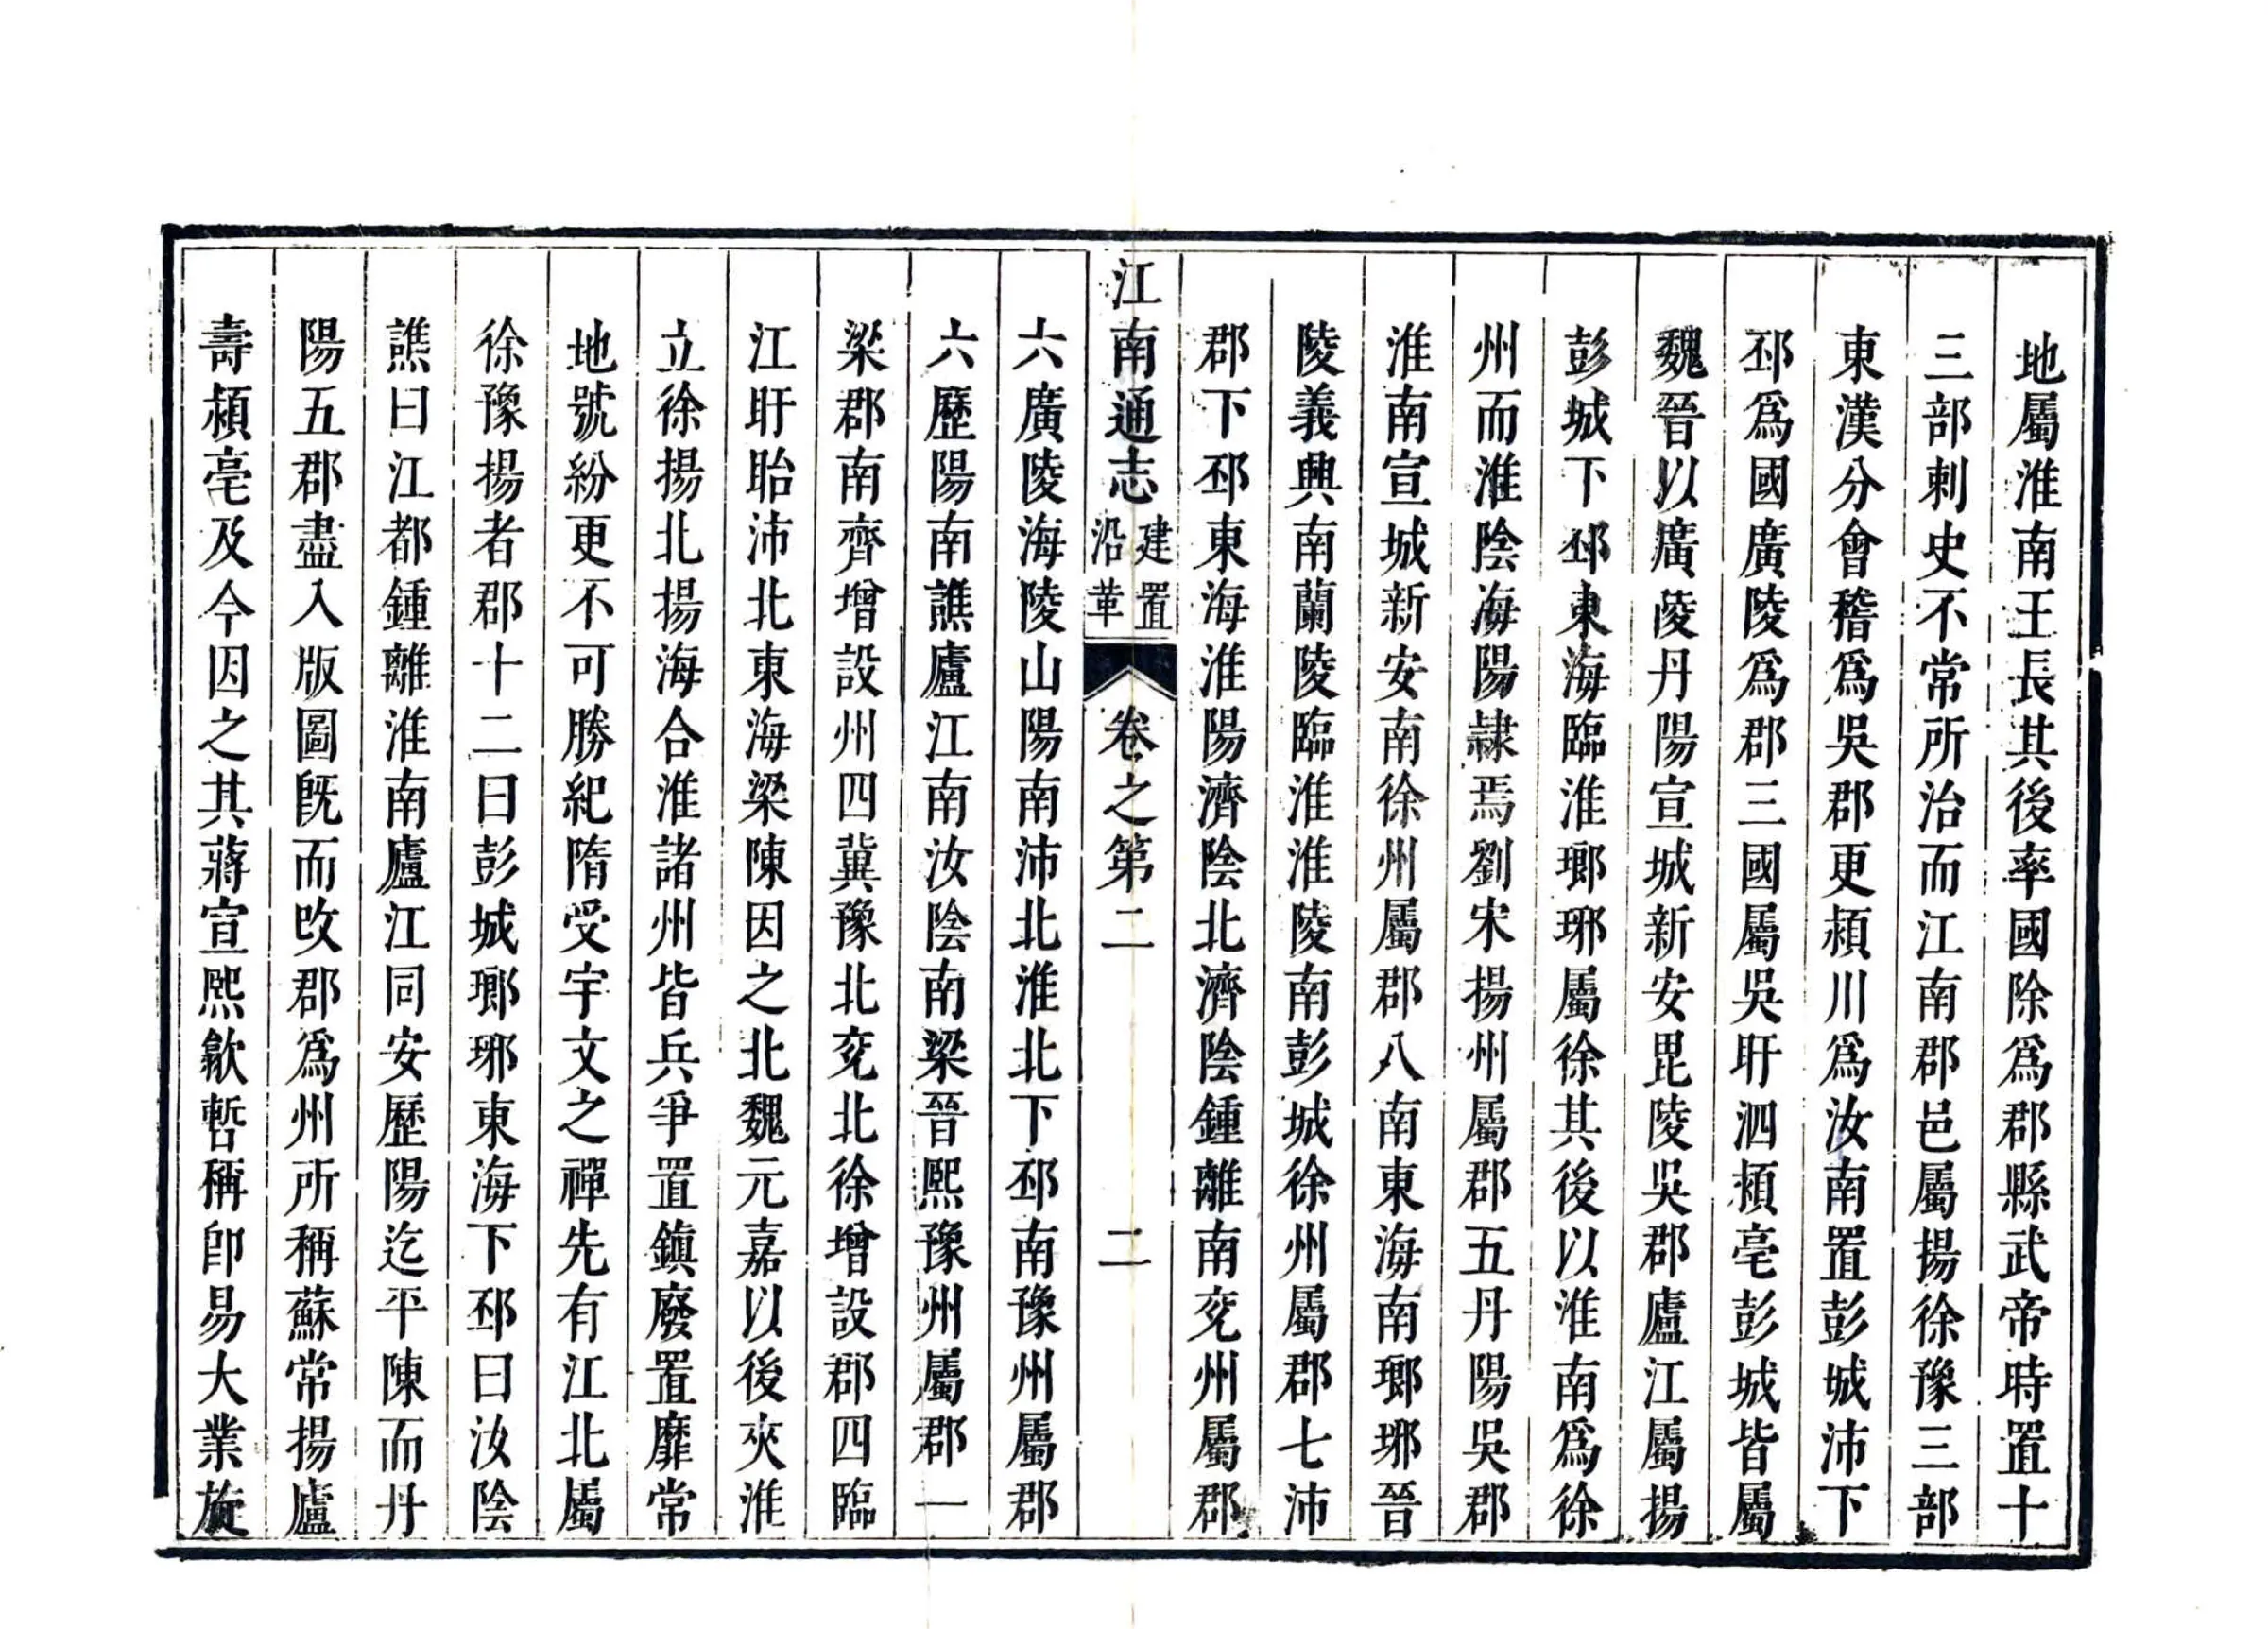 地屬淮南王長其後率國除爲郡縣武帝時置十
三部刺史不常所治而江南郡邑屬揚徐豫三部
東漢分會稽爲吳郡更潁川爲汝南置彭城沛下
邳爲國廣陵爲郡三國屬吳盱泗潁亳彭城皆屬
魏晉以廣陵丹陽宣城新安毘陵吳郡廬江屬揚
彭城下邳東海臨淮瑯琊屬徐其後以淮南爲徐
州而淮陰海陽隷焉劉宋揚州屬郡五丹陽吳郡
淮南宣城新安南徐州屬郡八南東海南瑯琊晉
陵義興南蘭陵臨淮淮陵南彭城徐州屬郡七沛
郡下邳東海淮陽濟陰北濟陰鍾離南兖州屬郡
江南通志 建置沿革 卷之第二 二
六廣陵海陵山陽南沛北淮北下邳南豫州屬郡
六歷陽南譙廬江南汝陰南梁晉熙豫州屬郡一
梁郡南齊增設州四冀豫北兖北徐增設郡四臨
江盱眙沛北東海梁陳因之北魏元嘉以後夾淮
立徐揚北揚海合淮諸州皆兵爭置鎮廢置靡常
地號紛更不可勝紀隋受宇文之禪先有江北屬
徐豫揚者郡十二曰彭城瑯琊東海下邳曰汝陰
譙曰江都鍾離淮南廬江同安歷陽迄平陳而丹
陽五郡盡入版圖旣而改郡爲州所稱蘇常揚廬
壽潁亳及今因之其蔣宣熙歙暫稱卽易大業旋